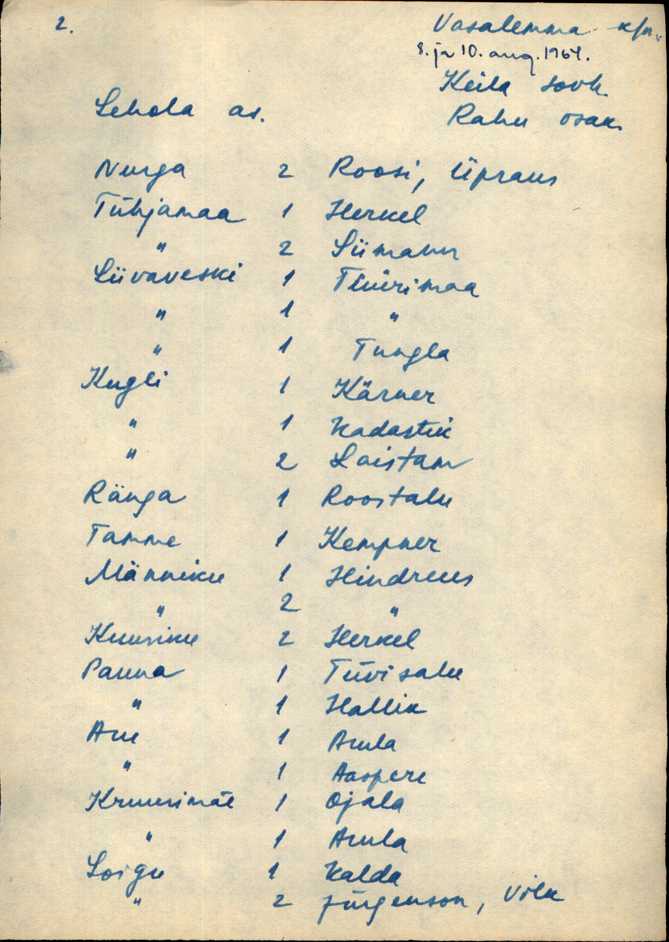 2.
Vasalemma k/n.
8. ja 10. aug. 1964.
Keila sovh.
Lehola as. Rahu osak.
Nurga 2 Roosi, Üpraus
Tühjamaa 1 Herkel
" 2 Siimann
Liivaveski 1 Tiiirimaa
" 1 "
" 1 Tungla
Kugli 1 Kärner
" 1 Kadastik
" 2 Laistam
Ränga 1 Roostalu
Tamme 1 Kempner
Männiku 1 Hindreus
" 2 "
Kuusiku 2 Herkel
Panna 1 Tiivisalu
" 1 Hallik
Aru 1 Arula
" 1 Aaspere
Kruusimäe 1 Ojala
" 1 Arula
Loigu 1 Kalda
" 2 Jürgenson, Vilu